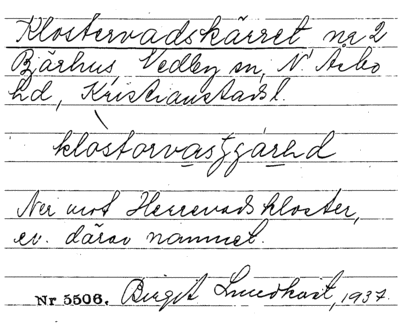 Klostervadskärret nr 2
Bjärhus, Vedby sn, N Åsbo
hd, Kristianstads l.
klòstorvasʒɡárhd
Ner mot Herrevadskloster,
ev. därav namnet.
Nr 5506. Birgit Lundkvist, 1937.